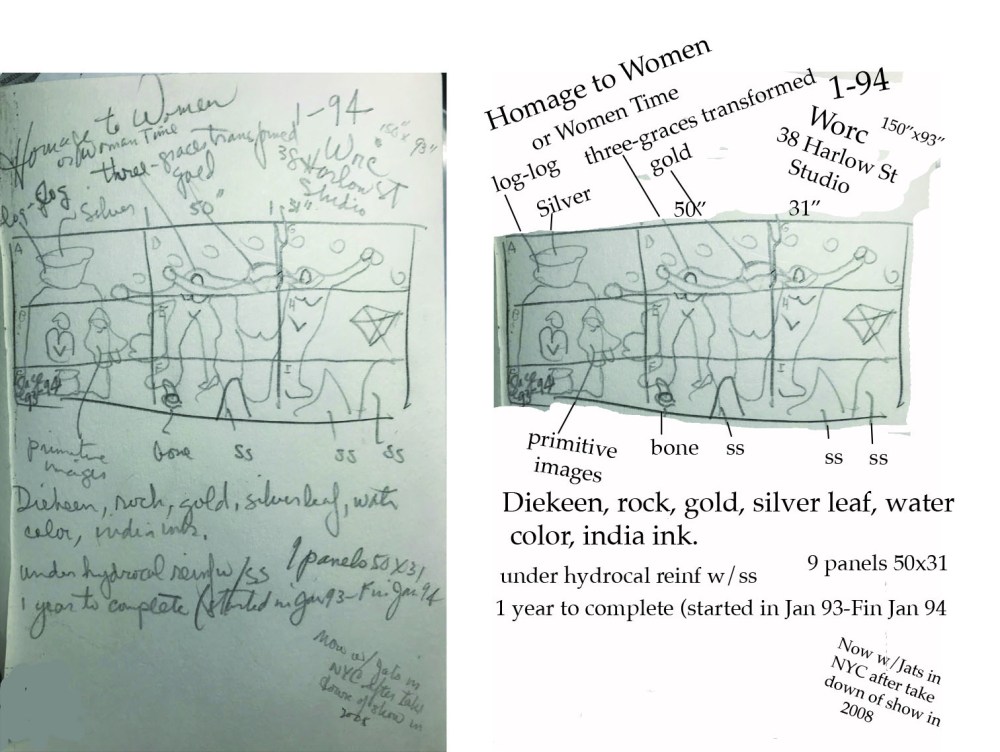 Homage to Women
or Woman Time
three-graces transformed
gold
1-94
150" x 93"
Worc
38 Harlow St
Studio
log-log
Silver
50"
31"
A
D
G
B
E
H
C
F
I
primitive
images
bone
ss
ss
ss
Diekeen, rock, gold, silver leaf, water
color, india ink.
under hydrocal reinf w/ss
9 panels 50x31
1 year to complete (started in Jan 93-Fin Jan 94
Now w/Jats in
NYC after take
down of show in
2008
Homage to Women
or Women Time
three-graces transformed
gold
1-94
Worc
150”x93”
38 Harlow St
Studio
log-log
Silver
50”
31”
A
D
G
B
E
H
F
I
primitive
images
bone
ss
ss
ss
Diekeen, rock, gold, silver leaf, water
color, india ink.
under hydrocal reinf w/ss
9 panels 50x31
1 year to complete (started in Jan 93-Fin Jan 94
Now w/Jats in
NYC after take
down of show in
2008